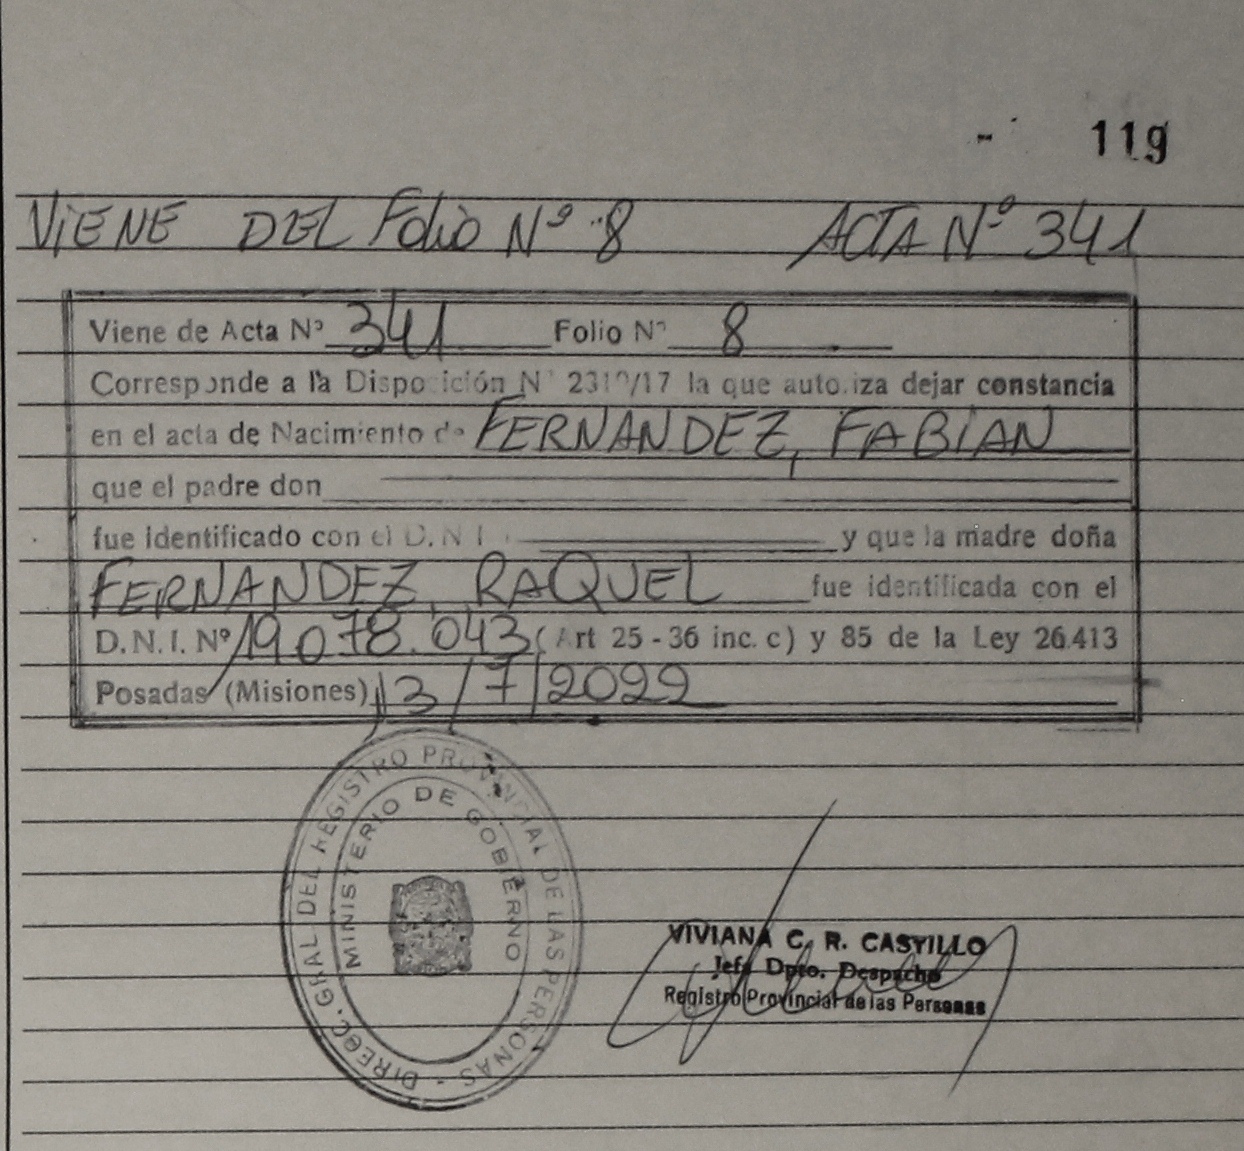 119
VIENE DEL Folio Nº 8 ACTA Nº 341
Viene de Acta Nº 341 Folio Nº 8
Corresponde a la Disposición Nº /17 la que autoriza dejar constancia
en el acta de Nacimiento de FERNANDEZ, FABIAN
que el padre don
fue identificado con el D.N.I. y que la madre doña
FERNANDEZ, RAQUEL fue identificada con el
D.N.I. Nº 19.078.043 (Art 25 - 36 inc. c) y 85 de la Ley 26.413
Posadas (Misiones), 13/7/2022
DIRECC. GRAL DEL REGISTRO PROVINCIAL DE LAS PERSONAS -
MINISTERIO DE GOBIERNO
VIVIANA C. R. CASTILLO
Jefa Dpto. Despacho
Registro Provincial de las Personas